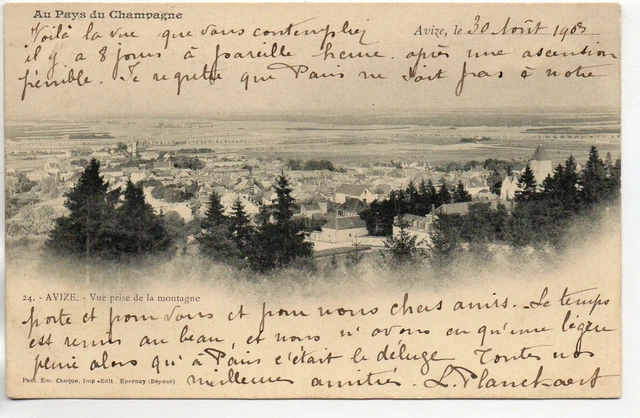 Au Pays du Champagne
Avize, le 30 Août 1903
Voilà la vue que vous contempliez
il y a 8 jours à pareille heure après une ascension
pénible. Je regrette que Paris ne soit pas à notre
24. - AVIZE. - Vue prise de la montagne
porte et pour vous et pour nous chers amis. Le temps
est remis au beau, et nous n'avons eu qu'une légère
pluie alors qu'à Paris c'était le déluge Toutes nos
Phot. Em. Choque, Imp-Edit. Epernay (Déposé)
meilleures amitiés L. Planckaert